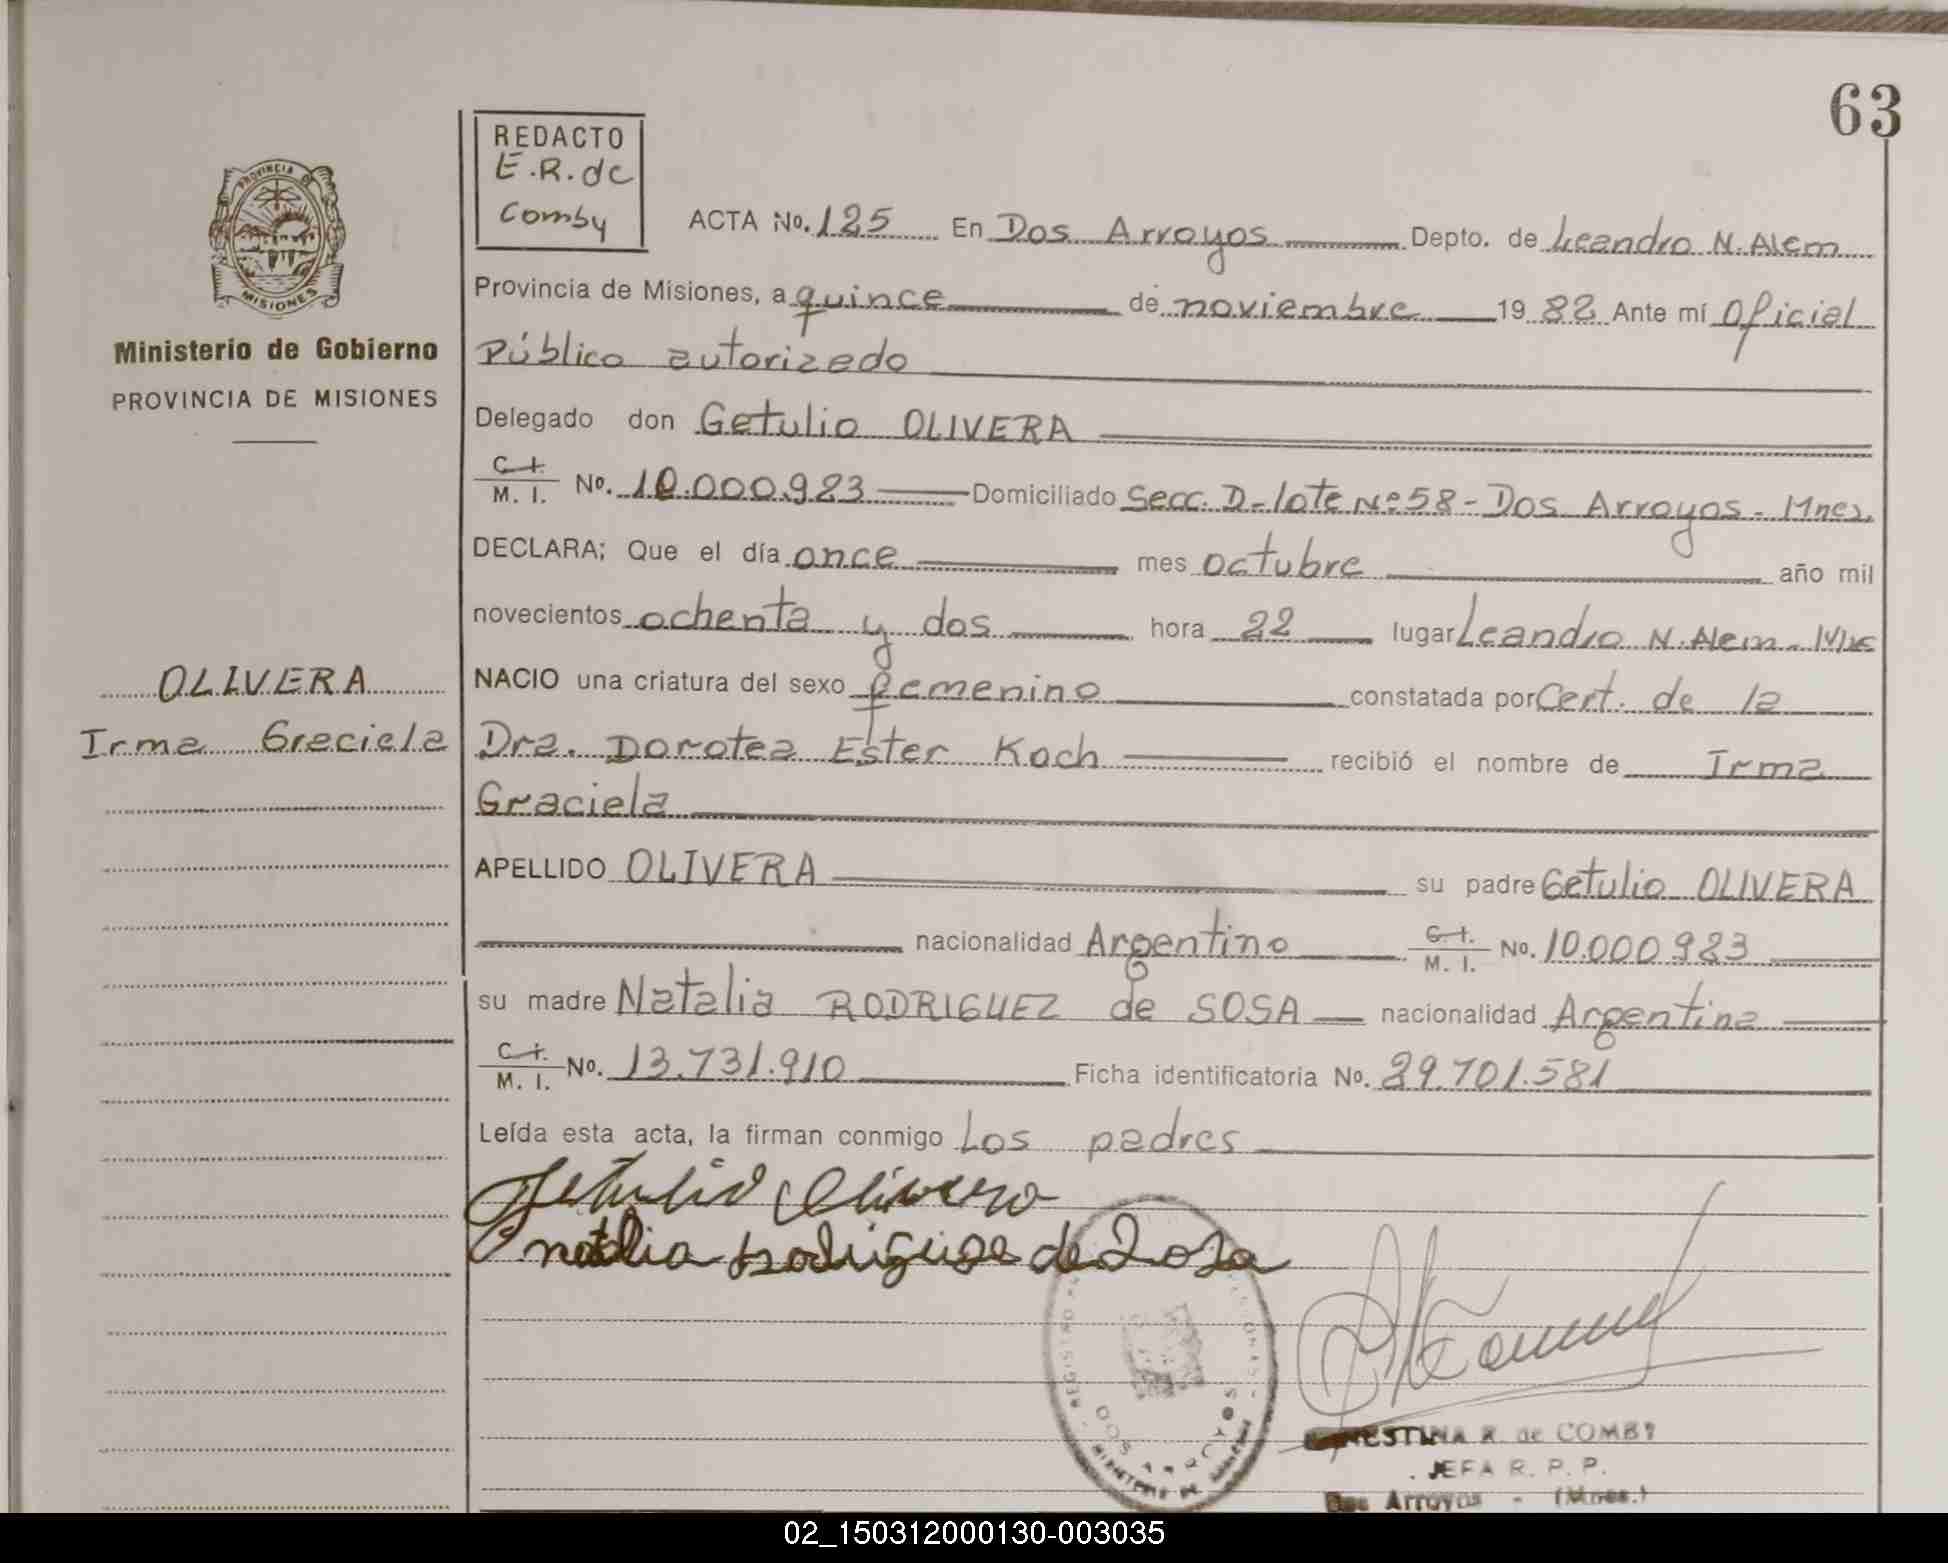 63
REDACTO
E.R. de
Comby
PROVINCIA DE
MISIONES
Ministerio de Gobierno
PROVINCIA DE MISIONES
ACTA No. 125 En Dos Arroyos Depto. de Leandro N. Alem
Provincia de Misiones, a quince de noviembre 1982 Ante mí Oficial
Público autorizado
Delegado don Getulio OLIVERA
C. I.
M. I. No. 10.000.923 Domiciliado Secc. D-lote Nº 58 - Dos Arroyos - Mnes.
DECLARA; Que el día once mes octubre año mil
novecientos ochenta y dos hora 22 lugar Leandro N. Alem - Mnes
OLIVERA
Irma Graciela
NACIO una criatura del sexo femenino constatada por Cert. de la
Dra. Dorotea Ester Koch recibió el nombre de Irma
Graciela
APELLIDO OLIVERA su padre Getulio OLIVERA
nacionalidad Argentino C. I.
M. I. No. 10.000.923
su madre Natalia RODRIGUEZ de SOSA nacionalidad Argentina
C. I.
M. I. No. 13.731.910 Ficha identificatoria No. 29.701.581
Leída esta acta, la firman conmigo Los padres
Getulio Olivera
natalia rodriguse de Sosa
REGISTRO
DOS ARROYOS
MINISTERIO DE
ERNESTINA R. de COMBY
JEFA R. P. P.
Dos Arroyos - (Mnes.)
02_150312000130-003035